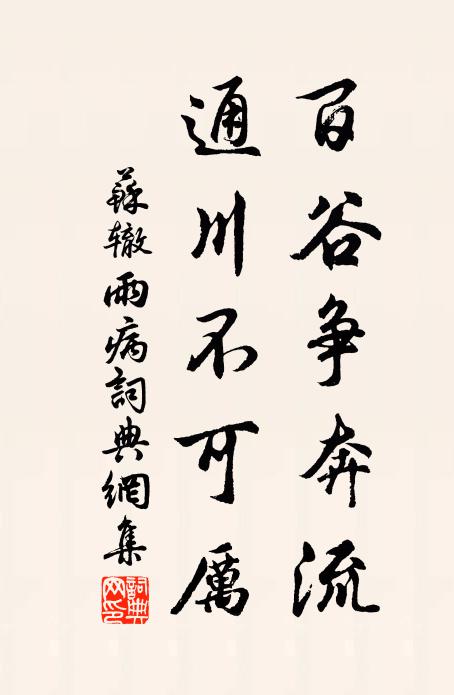 百谷争奔流
通川不可厲
蘇辙雨病詞典網集
詞典网印